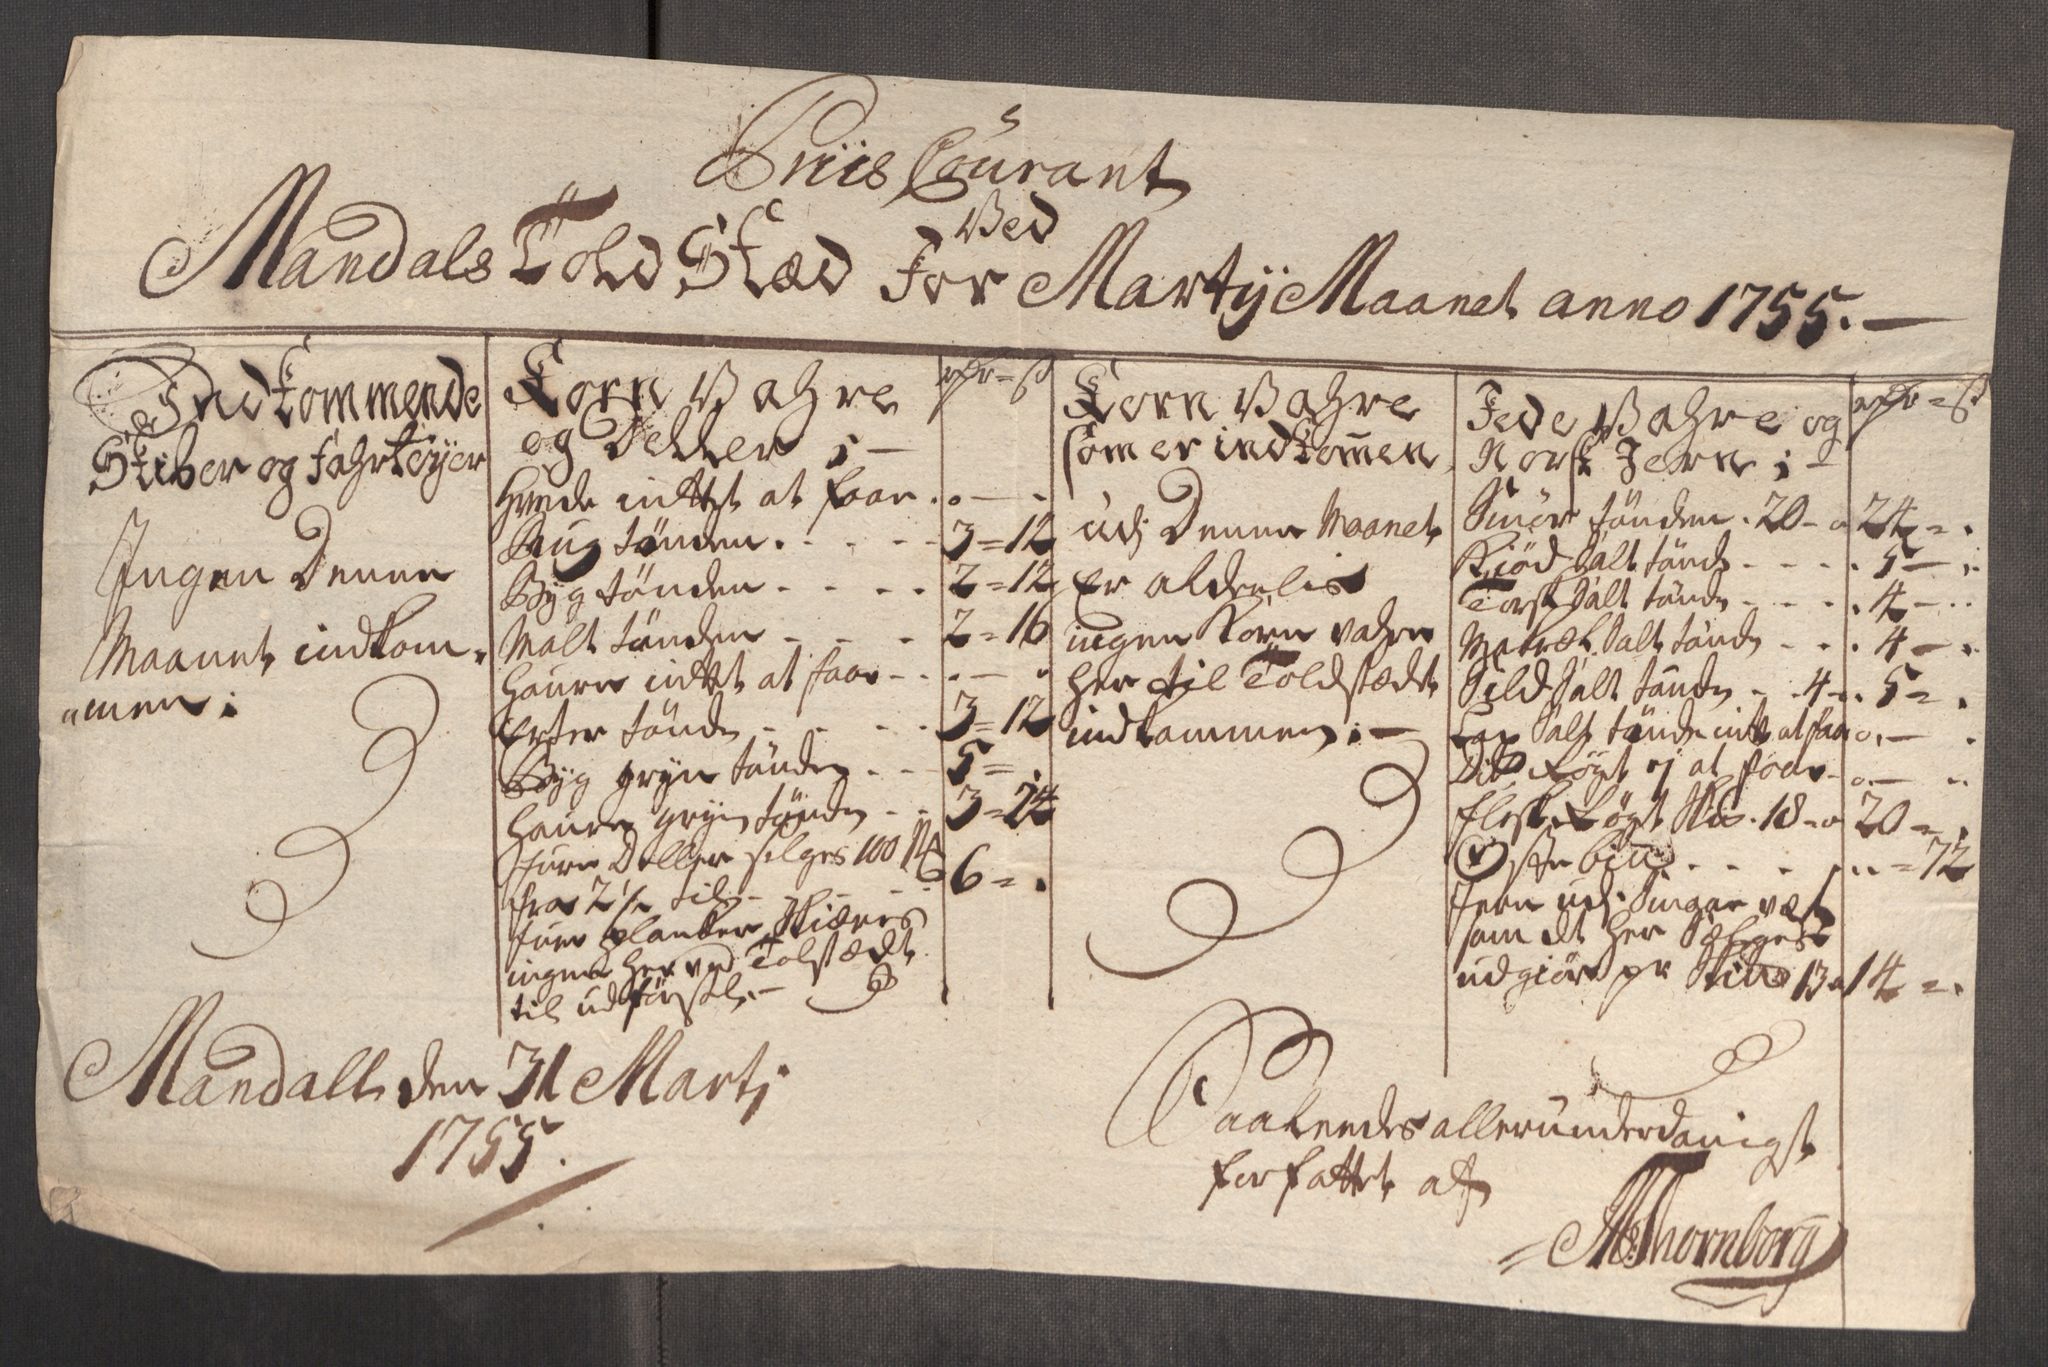 Priis Courant
Ved
Mandals Told Stæd For Martij Maanet anno 1755.
Indkommende
Skiber og fahrtøyer
Ingen Denne
Maanet indkom-
men;
Korn Vahre
og Deller;
rdr = s
Hvede inttet at faae . . - .
Rug tønden . . . . 3 = 12
Byg tønden . . . . 2 = 12
Malt tønden . . . 2 = 16
Haure inttet at faae . . . - .
Erter tønde . . . . 3 = 12
Byg gryn tønden . . 5 = .
Haure gryn tønde . . 3 = 24
furu Deller selges 100
fra 2 til . . . 6 = .
furu Planker Skiæres
ingen her ved Tolstædet
til udførsel.
Korn Vahre
som er indkommen
udj Denne Maanet
Er aldelis
ingen Korn vahre
her til Toldstædet
indkommen;
Fede Vahre og
Norsk Jern;
rdr = s
Smør tønden . 20 a 24 = .
Kiød Salt tønde . . . . 5 - .
Torsk Salt tønde . . . . 4 - .
Makrel Salt tønde . . . 4 - .
Sild Salt tønde . . 4 a 5 = .
Lax Salt tønde intt at faae . -
Dito Røgt ej at faae - . - .
Flesk Røgt 18 a 20 = .
. . . . . . = 72
Jern udj
som det her Sælges
udgiør pr 13 a 14 = .
Mandall den 31 Martj
1755.
Saaledes allerunderdanigst
forfattet af
Thornborg